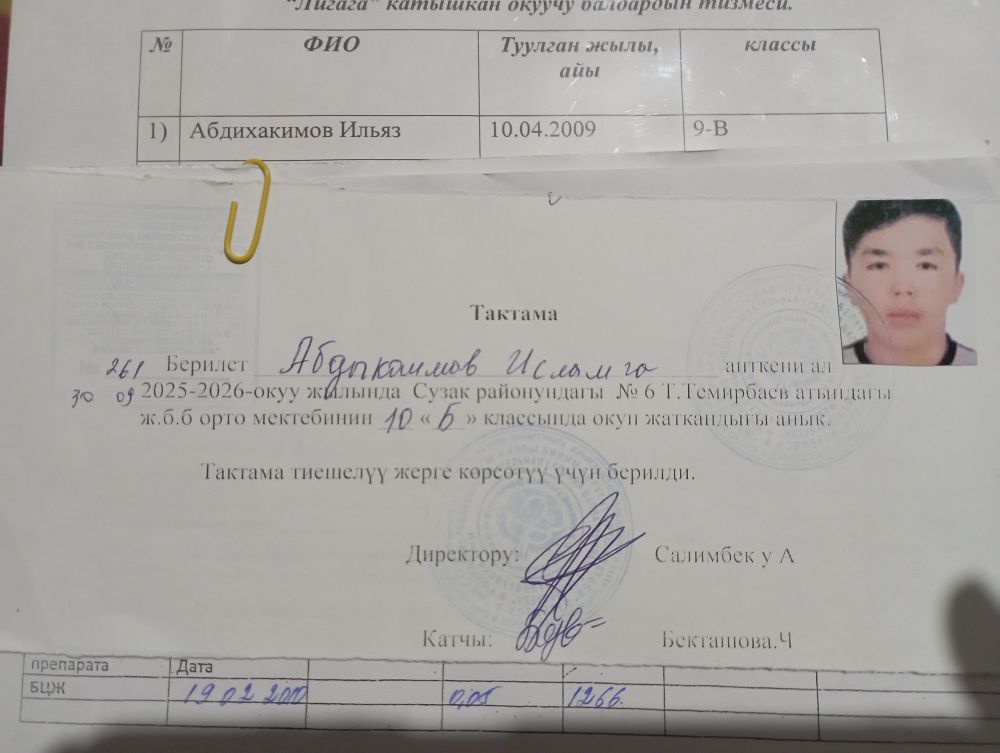 "Лигага" катышкан окуучу балдардын тизмеси.
№ ФИО Туулган жылы, айы классы
1) Абдихакимов Ильяз 10.04.2009 9-В
Тактама
261 Берилет Абдыкаимов Исламга анткени ал
30 09 2025-2026-окуу жылында Сузак районундагы № 6 Т.Темирбаев атындагы
ж.б.б орто мектебинин 10 « Б » классында окуп жаткандыгы анык.
Тактама тиешелүү жерге көрсөтүү үчүн берилди.
Директору: Салимбек у А
Катчы: Бекташова.Ч
препарата Дата
БЦЖ 19 02 2010 0,05 1266